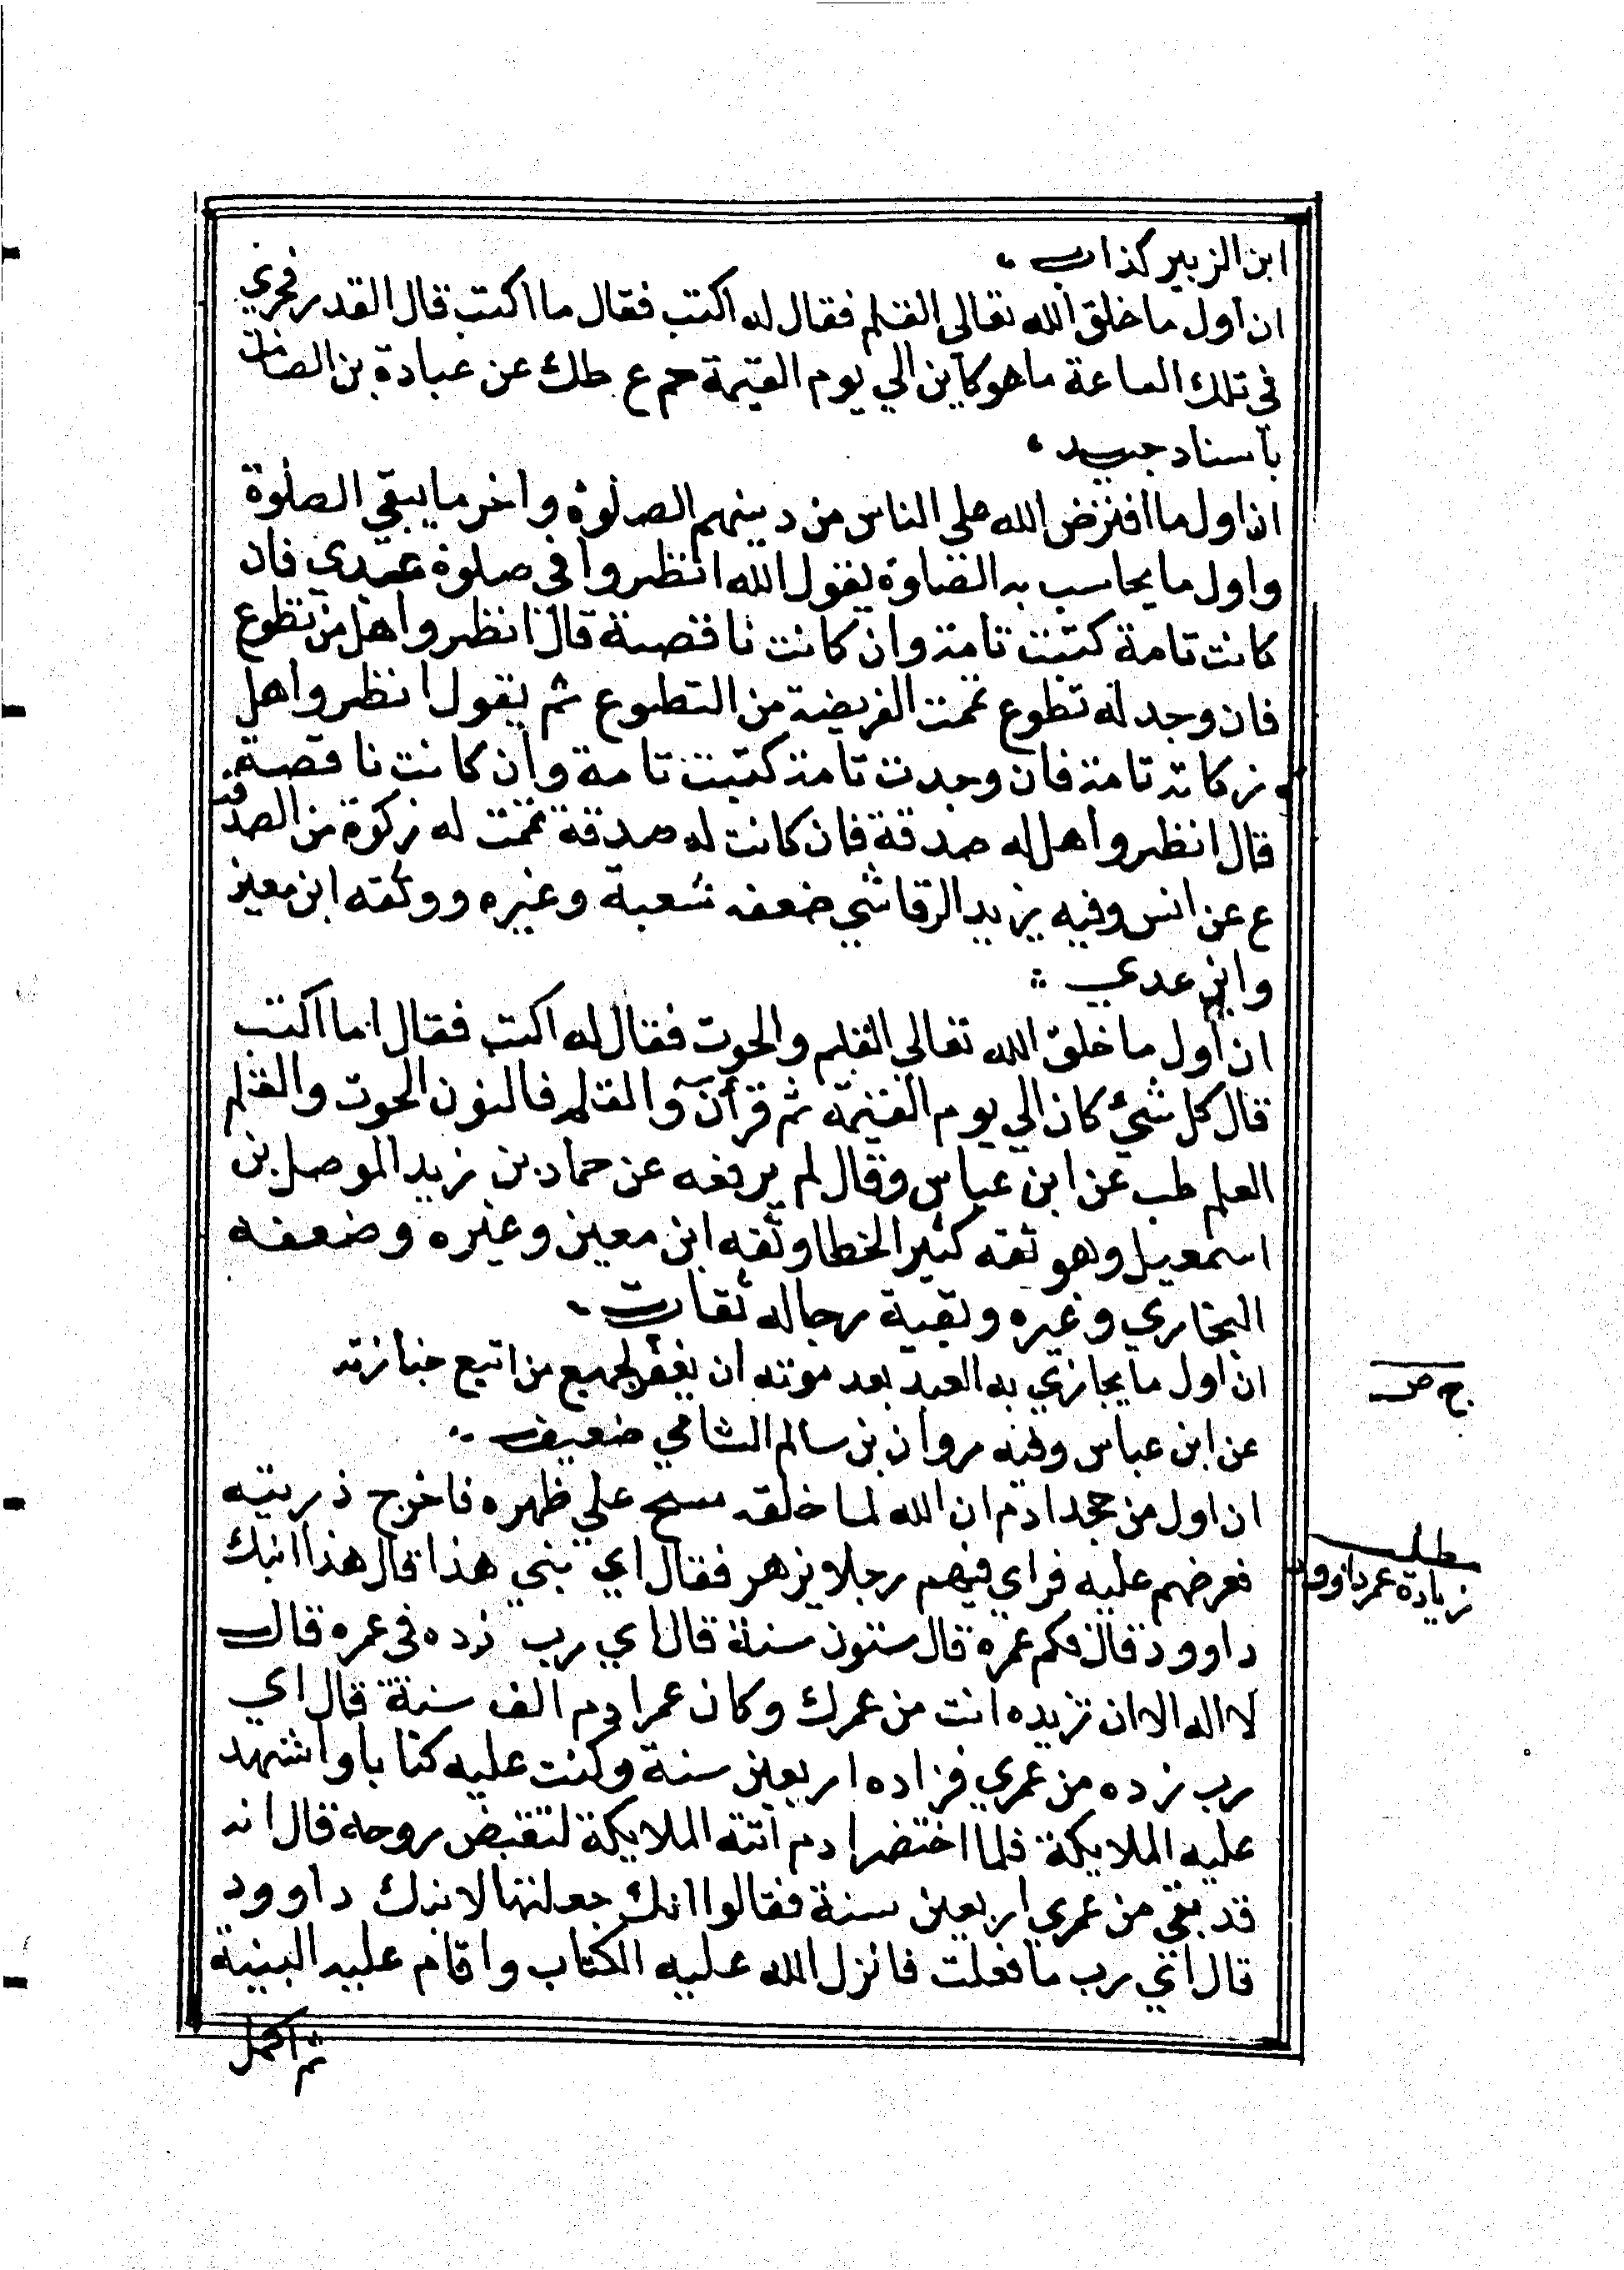 ابن الزبير كذاب
ان اول ما خلق الله تعالى القلم فقال له اكتب فقال ما اكتب قال القدر فجري
في تلك الساعة ما هو كاين الي يوم القيمة حم ع طك عن عبادة بن الصامت
باسناد جيد
ان اول ما افترض الله على الناس من دينهم الصلوة واخر ما يبقي الصلوة
واول ما يحاسب به الصلوة يقول الله انظروا في صلوة عبدي فان
كانت تامة كتبت تامة وان كانت ناقصة قال انظروا هل من تطوع
فان وجد له تطوع تممت الفريضة من التطوع ثم يقول انظروا هل
زكاته تامة فان وجدت تامة كتبت تامة وان كانت ناقصة
قال انظروا هل له صدقة فان كانت له صدقة تممت له زكوة من الصدقة
ع عن انس وفيه يزيد الرقاشي ضعفه شعبة وغيره ووثقه ابن معين
وابن عدي
ان اول ما خلق الله تعالى القلم والحوت فقال له اكتب فقال ما اكتب
قال كل شيء كان الي يوم القيمة ثم قرأ ن والقلم فالنون الحوت والقلم
العلم طب عن ابن عباس وقال لم يرفعه عن حماد بن زيد الموصل بن
اسمعيل وهو ثقه كثير الخطا وثقه ابن معين وغيره وضعفه
البخاري وغيره وبقية رجاله ثقات
ان اول ما يجازي به العبد بعد موته ان يغفر لجميع من اتبع جنازته
عن ابن عباس وفيه مروان بن سالم الشامي ضعيف
ان اول من جحد ادم ان الله لما خلقه مسح علي ظهره فاخرج ذريته
فعرضهم عليه فراي فيهم رجلا يزهر فقال اي بني هذا قال هذا ابنك
داوود قال فكم عمره قال ستون سنة قال اي رب زده في عمره قال
لا اله الا ان تزيده انت من عمرك وكان عمر ادم الف سنة قال اي
رب زده من عمري فزاده اربعين سنة وكتب عليه كتابا واشهد
عليه الملايكة فلما اختضر ادم اتته الملايكة لتقبض روحه قال انه
قد بقي من عمري اربعين سنة فقالوا انك جعلتها لابنك داوود
قال اي رب ما فعلت فانزل الله عليه الكتاب واقام عليه البينة
ثم اكمل
مطلب
زيادة عمر داوود